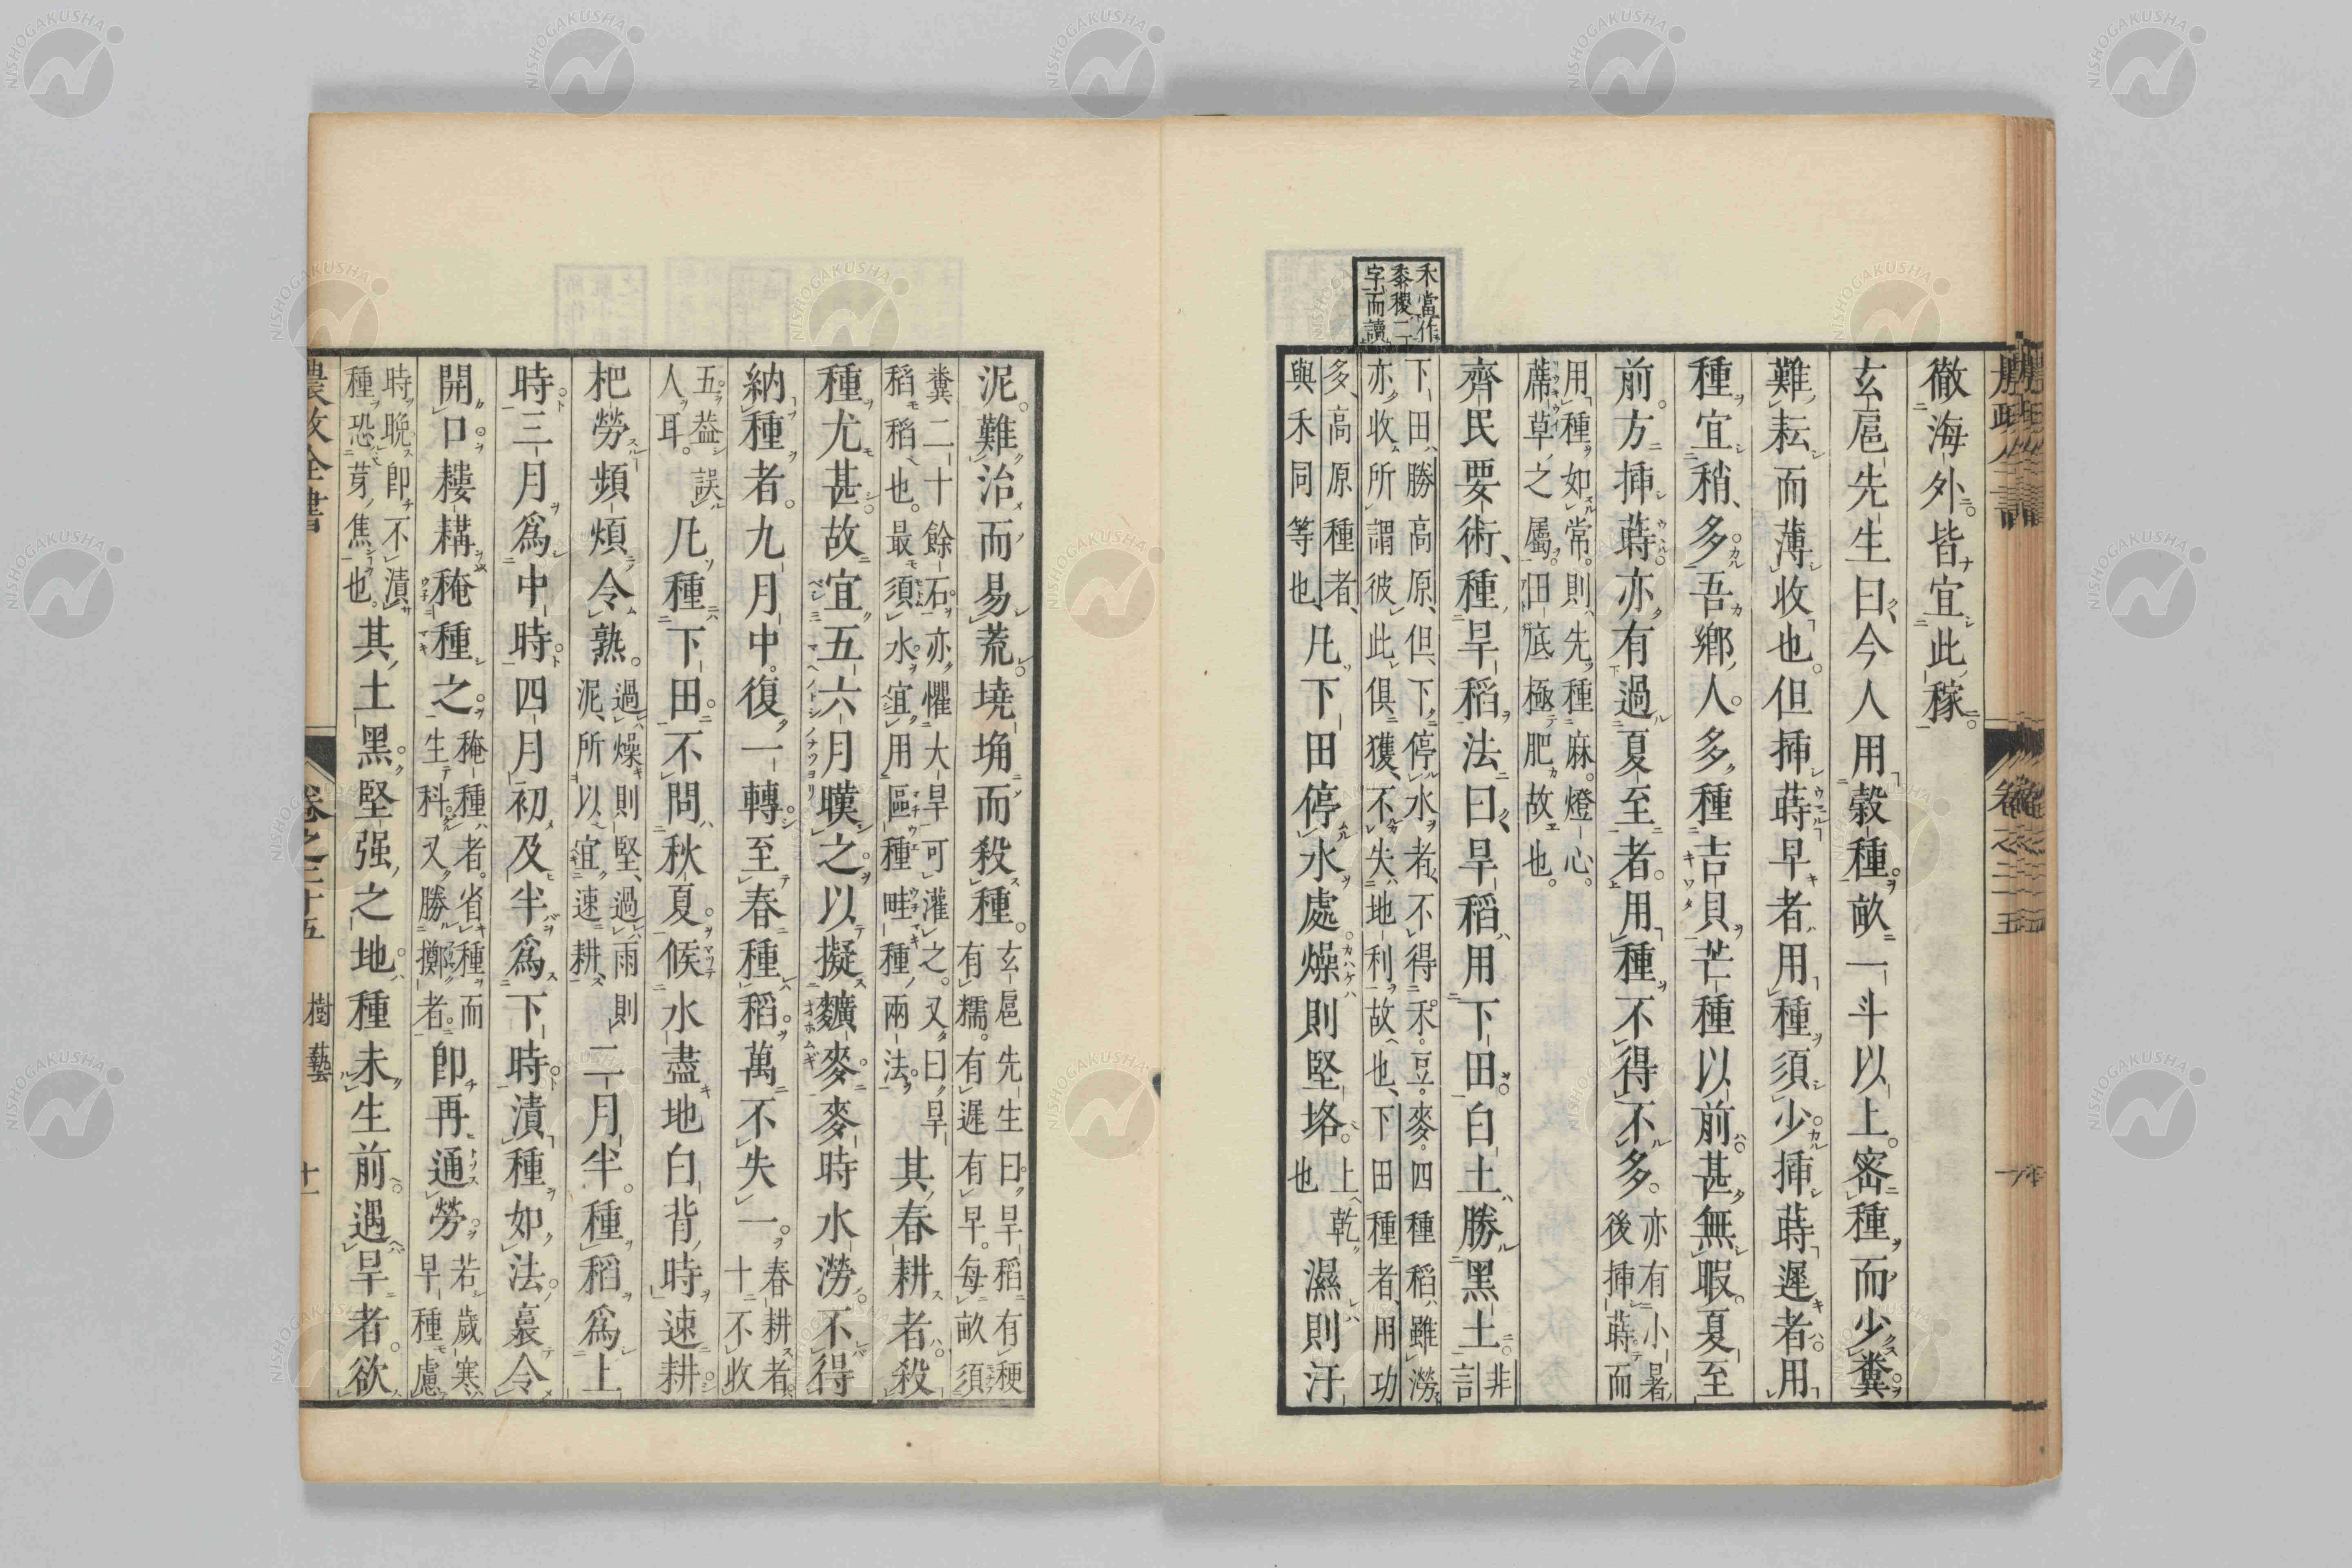 禾當作
黍稷二
字而讀
徹海外皆宜此稼
玄扈先生曰今人用穀種畝一斗以上密種而少糞
難耘而薄收也但揷蒔早者用種須少揷蒔遲者用
種宜稍多吾鄉人多種吉貝芒種以前甚無暇夏至
前方揷蒔亦有過夏至者用種不得不多亦有小暑
後揷蒔而
用種如常則先種麻燈心
蓆草之屬田底極肥故也
齊民要術種旱稻法曰旱稻用下田白土勝黑土非
言
下田勝高原但下停水者不得禾豆麥四種稻雖澇
亦收所謂彼此俱獲不失地利故也下田種者用功
多高原種者
與禾同等也
凡下田停水處燥則堅垎上乾
也
濕則汙
泥難治而易荒墝埆而殺種
玄扈先生曰旱稻有稉
有糯有遲有早每畝須
糞二十餘石亦懼大旱可灌之又曰旱
稻稻也最須水宜用區種畦種兩法
其春耕者殺
種尤甚故宜五六月暵之以擬䵃麥麥時水澇不得
納種者九月中復一轉至春種稻萬不失一春耕者
十不收
五葢誤
人耳
凡種下田不問秋夏候水盡地白背時速耕
杷勞頻煩令熟
過燥則堅過雨則
泥所以宜速耕
二月半種稻爲上
時三月爲中時四月初及半爲下時漬種如法裛令
開口耬耩稀種之
稀種者省種而
生科又勝擲者
即再遍勞
若歲寒
早種慮
時晚即不漬
種恐芽焦也
其土黑堅强之地種未生前遇旱者欲
農政全書
卷之二十五
樹藝
十一